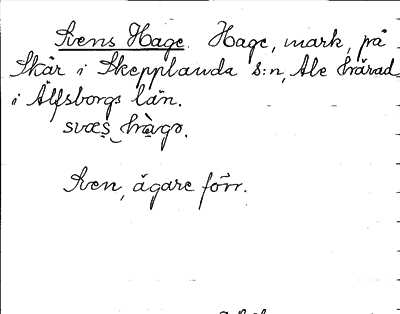 Svens Hage. Hage, mark, på
Skår i Skepplanda s:n, Ale härad
i Älfsborgs län.
Sven, ägare förr.